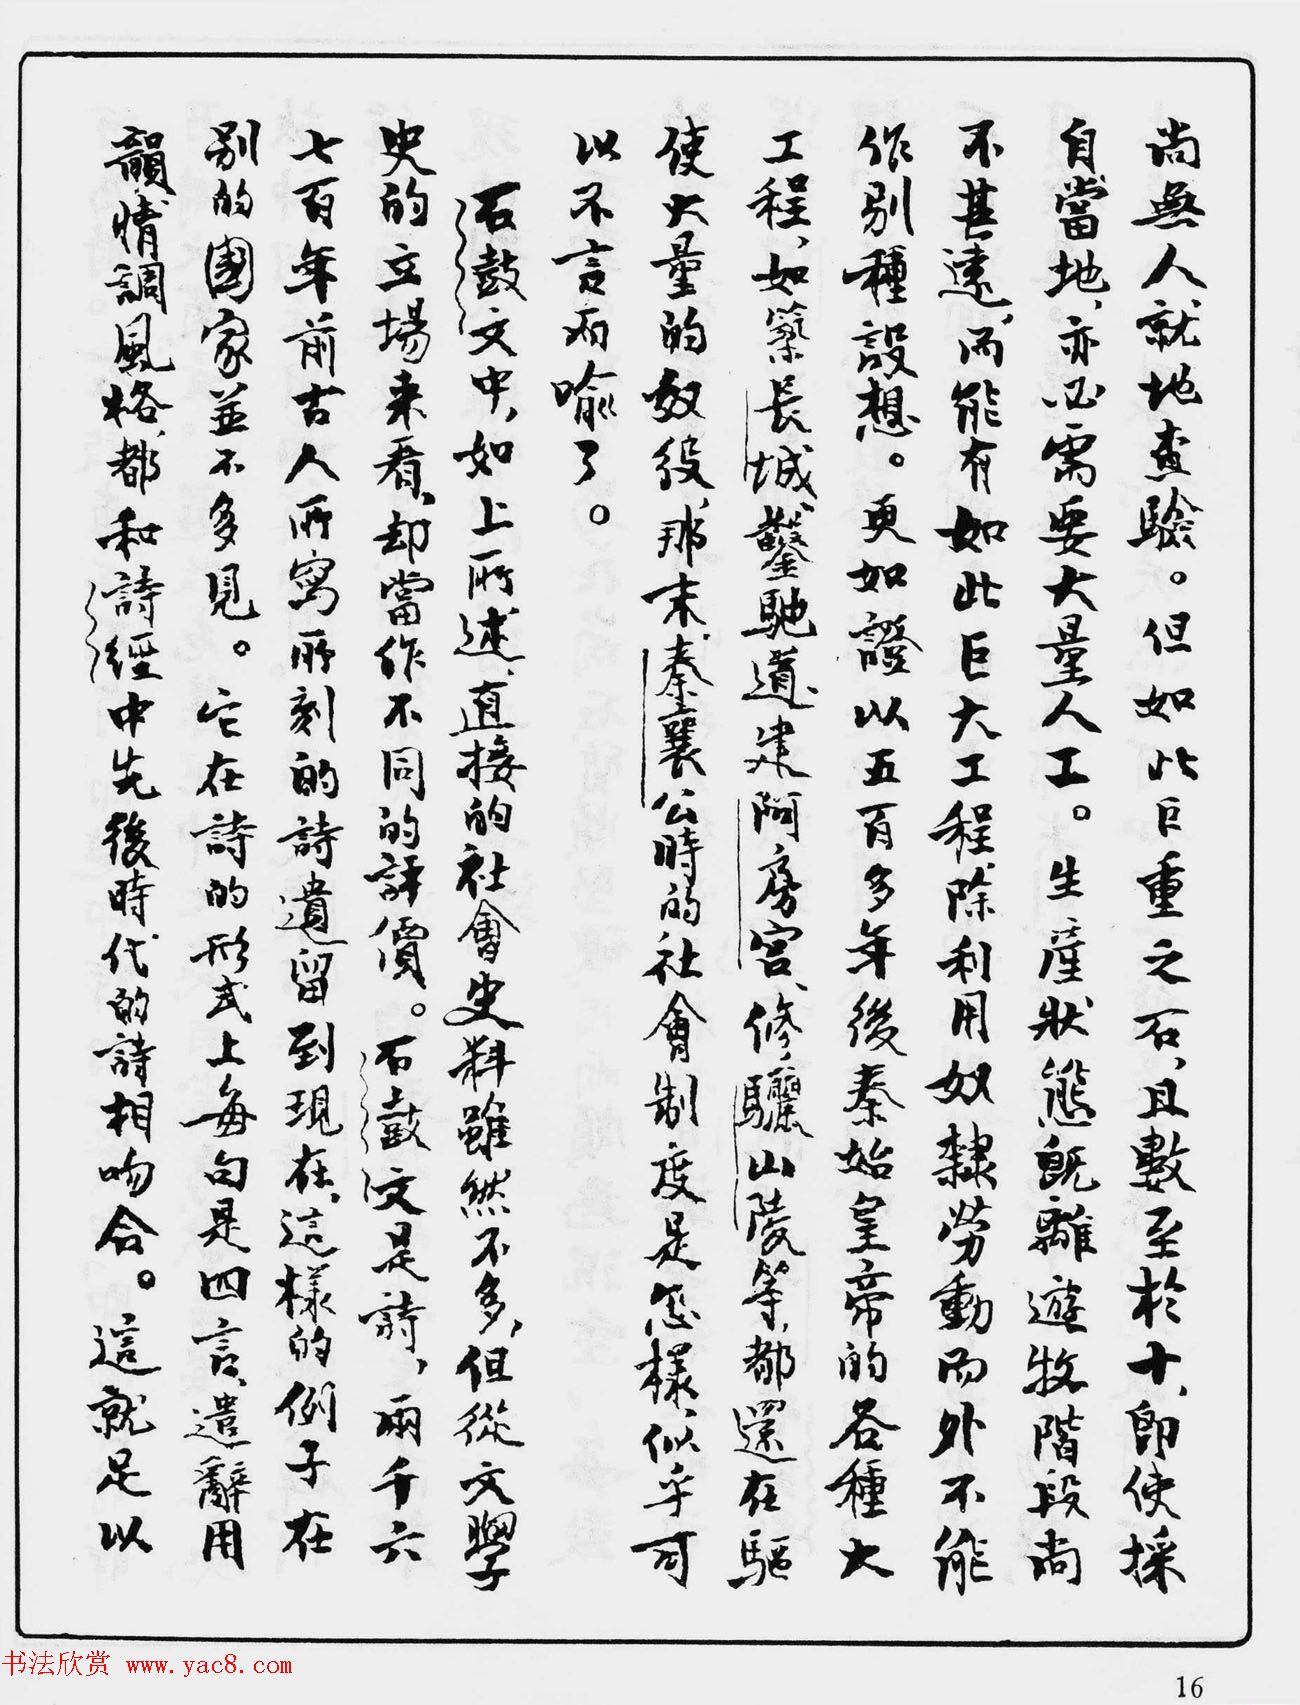 尚無人就地查驗。但如此巨重之石、且數至於十、即使採
自當地、亦必需要大量人工。生產狀態既離遊牧階段尚
不甚遠、而能有如此巨大工程、除利用奴隸勞動而外不能
作別種設想。更如證以五百多年後秦始皇帝的各種大
工程、如築長城、鑿馳道、建阿房宮、修驪山陵等、都還在驅
使大量的奴役、那末、秦襄公時的社會制度是怎樣、似乎可
以不言而喻了。
石鼓文中、如上所述、直接的社會史料雖然不多、但從文學
史的立場来看、却當作不同的評價。石鼓文是詩、兩千六
七百年前古人所寫所刻的詩遺留到現在、這樣的例子在
别的國家並不多見。它在詩的形式上每句是四言、遣辭用
韻、情調風格、都和詩經中先後時代的詩相吻合。這就足以
书法欣赏 www.yac8.com
16